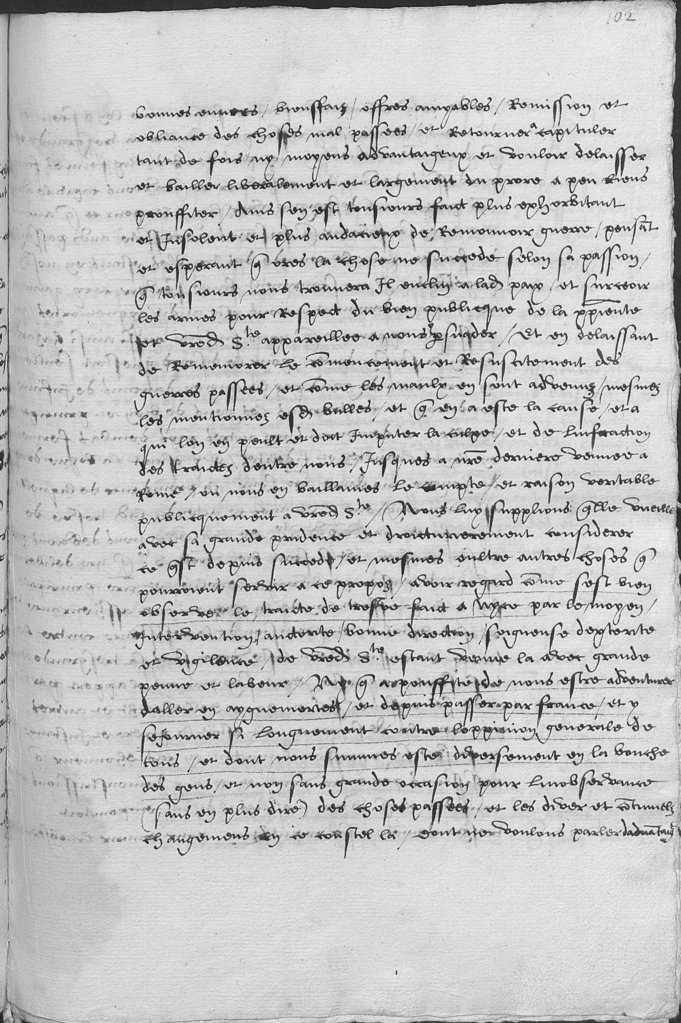 102
bonnes euvres / bienffaiz / offres amyables / Remission et
obliance des choses mal passees / et Retourner a capituler
tant de fois / ny moyens advantaigeux et vouloir delaisser
et bailler liberalement et largement du propre a peu Riens
prouffiter / Ains sen est tousiours faict plus exhorbitant
et Insolent et plus audacieux de Remouvoir guerre / pensat
et esperant q ores la chose ne succede selon sa passion /
q tousiours nous trouvera Il enclin a lad paix / et surceoir
les armes pour Respect du bien publicque de la pnte
et vred Ste appareillee a nous psuader / Et en delaissant
de Rememorer le comencement et Resuscitement des
guerres passees / et come les maulx en sont advenuz / mesmes
les mentionnez esd bulles / et q en a este la cause / et a
qui lon en peult et doit Imputer la culpe / et de linfraction
des traictez dentre nous / Jusques a nre derniere venue a
Rome / ou nous en baillames le compte / et raison veritable
publicquement a vred Ste / Nous luy supplions qlle vueille
avec sa grande prudence et droicturierement considerer
ce qst depuis succede / et mesmes oultre autres choses q
pourroient servir a ce propoz / avoir regard come sest bien
observe le traicte de trefve faict a Nyce par le moyen /
Intervention / auctorite / bonne direction / soigneuse dexterite
et vigilence / de vred Ste estant venue la avec grande
peine et labeur / Ny q a prouffite de nous estre adventurer
daller en ayguemortes / et depuis passer par france / et y
sejourner si longuement contre loppinion generale de
tous / et dont nous summes este diversement en la bouche
des gens / et non sans grande occasion pour linobservance
(sans en plus dire) des choses passees / et les divers et continuelz
changemens en ce coustel la / dont ne voulons parler dadvantaige